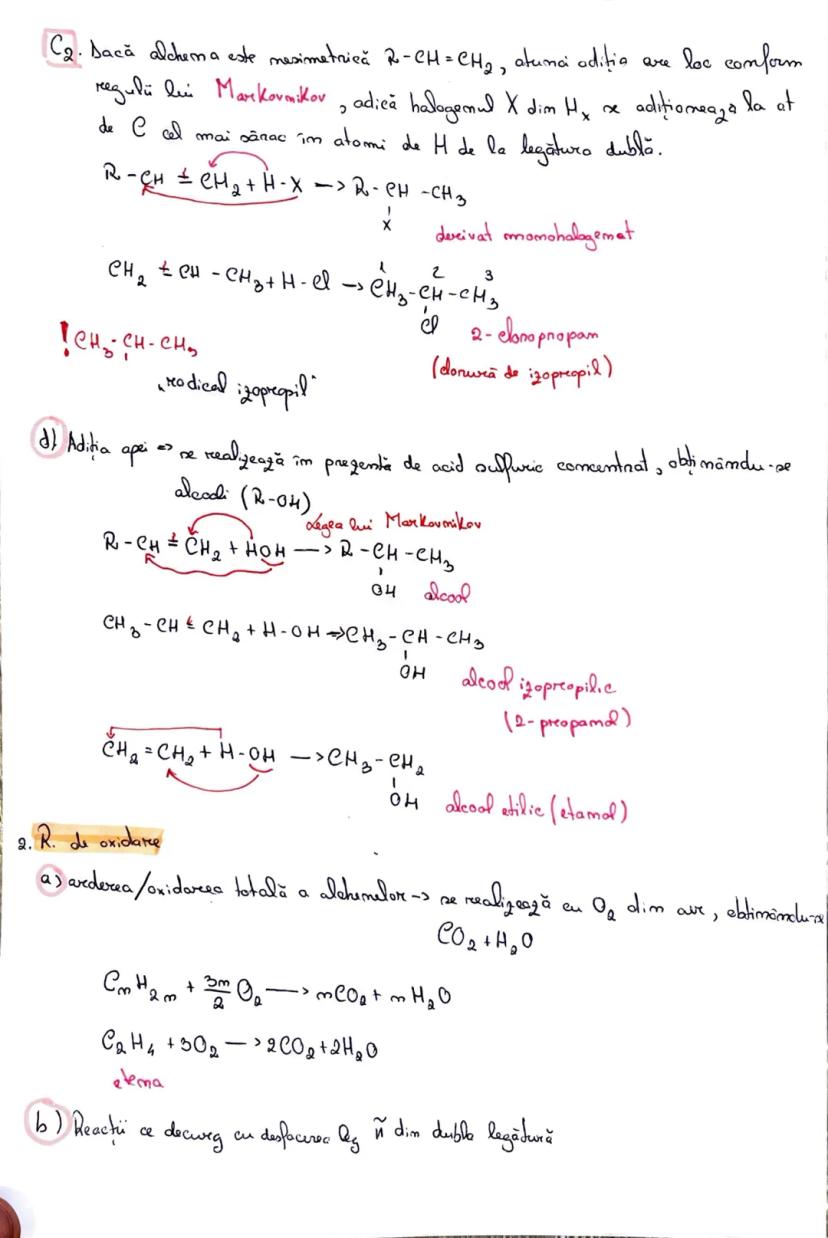 C2. Dacă alchena este nesimetrică R-CH=CH2, atunci adiția are loc conform
regulii lui Markovnikov, adică halogenul X din Hx se adiționează la at
de C cel mai sărac în atomi de H de la legătura dublă.
R-CH=CH2 + H-X -> R-CH-CH3
X
derivat monohalogenat
1 2 3
CH2=CH-CH3 + H-Cl -> CH3-CH-CH3
Cl 2-cloropropan
(clorură de izopropil)
! CH3-CH-CH3
„radical izopropil"
d) Adiția apei => se realizează în prezență de acid sulfuric concentrat, obținându-se
alcooli (R-OH)
Legea lui Markovnikov
R-CH=CH2 + HOH -> R-CH-CH3
OH alcool
CH3-CH=CH2 + H-OH => CH3-CH-CH3
OH
alcool izopropilic
(2-propanol)
CH2=CH2 + H-OH -> CH3-CH2
OH alcool etilic (etanol)
2. R. de oxidare
a) arderea/oxidarea totală a alchenelor -> se realizează cu O2 din aer, obținându-se
CO2 + H2O
CnH2n + 3n/2 O2 -> nCO2 + nH2O
C2H4 + 3O2 -> 2CO2 + 2H2O
etena
b) Reacții ce decurg cu desfacerea lg π din dubla legătură